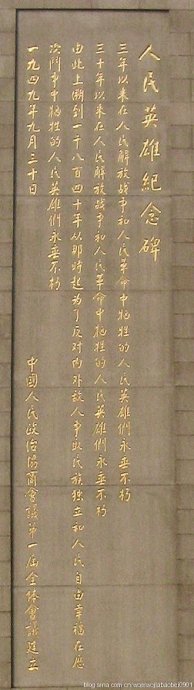 人民英雄紀念碑
三年以来在人民解放战争和人民革命中牺牲的人民英雄們永垂不朽
三十年以来在人民解放战争和人民革命中牺牲的人民英雄們永垂不朽
由此上溯到一千八百四十年从那時起为了反对内外敌人争取民族独立和人民自由幸福在歷
次鬥争中牺牲的人民英雄們永垂不朽
一九四九年九月三十日
中國人民政治協商會議第一届全体會議建立
blog.sina.com.cn/woaiwojiabaobei0901